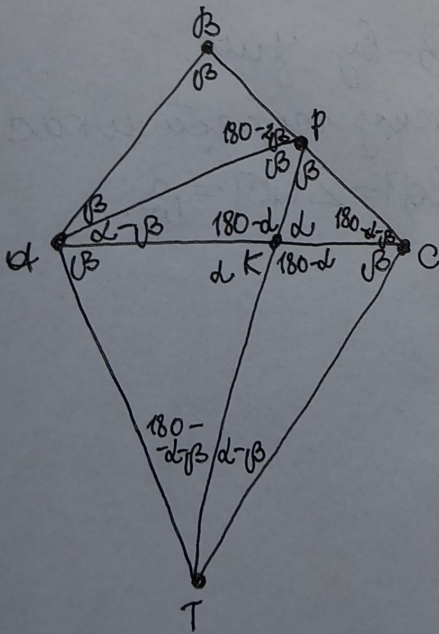 B
β
180-2β P
β β
β
α-β 180-α α 180-α-β
A β α K 180-α β C
180-
-α-β α-β
T